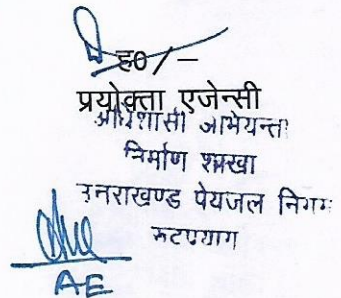 ह0/-
प्रयोक्ता एजेन्सी
अधिशासी अभियन्ता
निर्माण शाखा
उत्तराखण्ड पेयजल निगम
रूद्रप्रयाग
AE